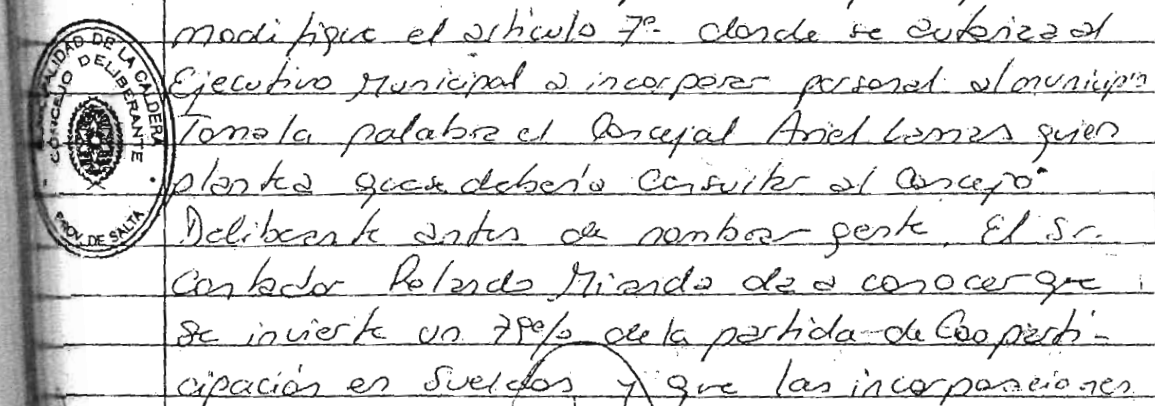 modifique el artículo 7º- donde se autoriza al
Ejecutivo Municipal a incorporar personal al municipio
Toma la palabra el Concejal Ariel Lamas quien
plantea que se debería Consultar al Concejo
Deliberante antes de nombrar gente. El Sr.
Contador Rolando Miranda da a conocer que
se invierte un % de la partida de Cooparti-
cipación en Sueldos y que las incorporaciones
MUNICIPALIDAD DE LA CALDERA
CONCEJO DELIBERANTE
PROV. DE SALTA